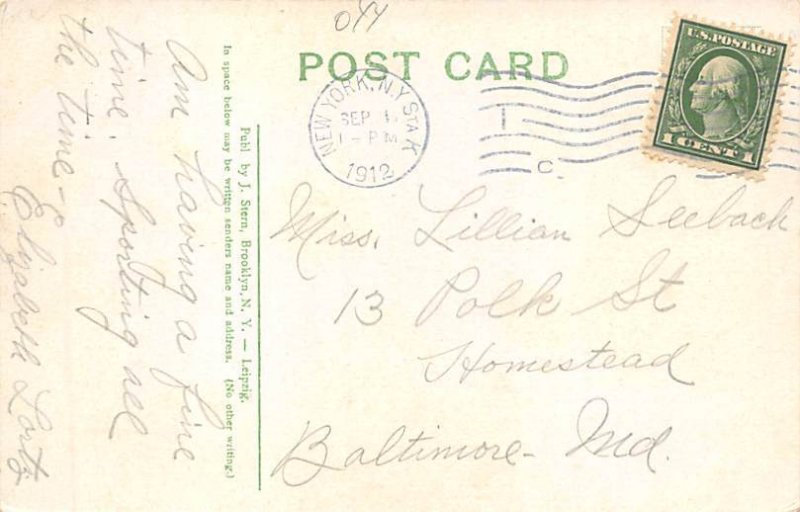 044
POST CARD
U.S. POSTAGE
1 CENT 1
NEW YORK, N.Y. STA. K
SEP
1- PM
1912
C
Am having a fine
time. Sporting all
the time -
Elizabeth Lortz
In space below may be written senders name and address. (No other writing.)
Publ by J. Stern, Brooklyn, N. Y. — Leipzig.
Miss. Lillian Seeback
13 Polk St
Homestead
Baltimore - Md.